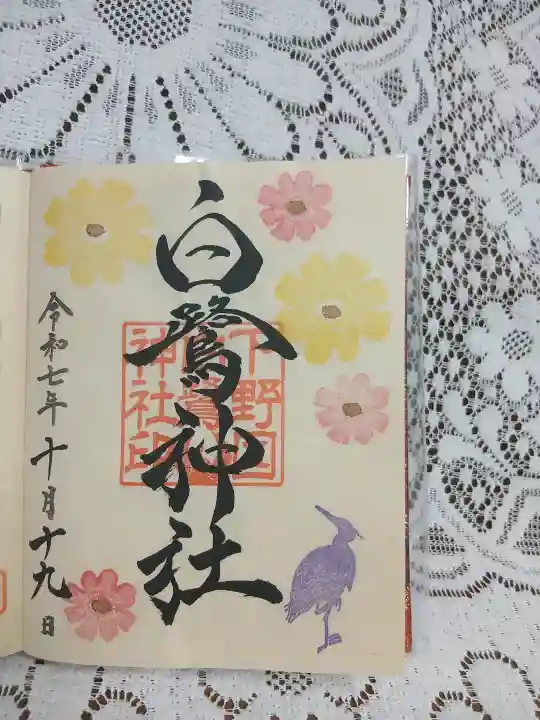 白鷺神社
下野国
鷺
神社印
令和七年十月十九日